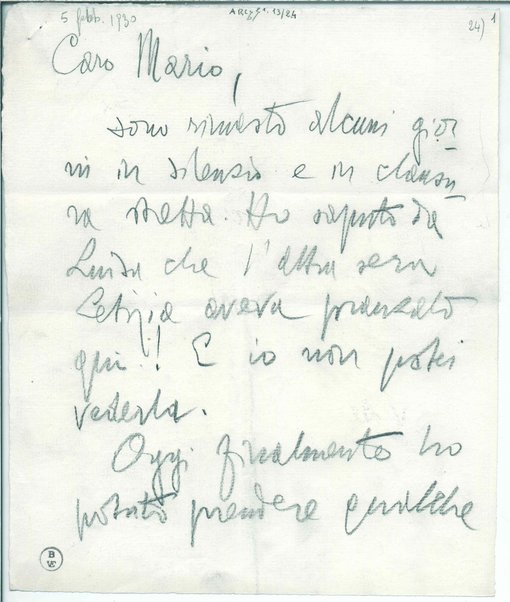 5 febb. 1930
24) 1
Caro Mario,
sono rimasto alcuni gior
ni in silenzio e in clausu
ra stretta. Ho saputo da
Luisa che l'altra sera
Letizia aveva pranzato
qui!! E io non potei
vederla.
Oggi finalmente ho
potuto prendere qualche
B